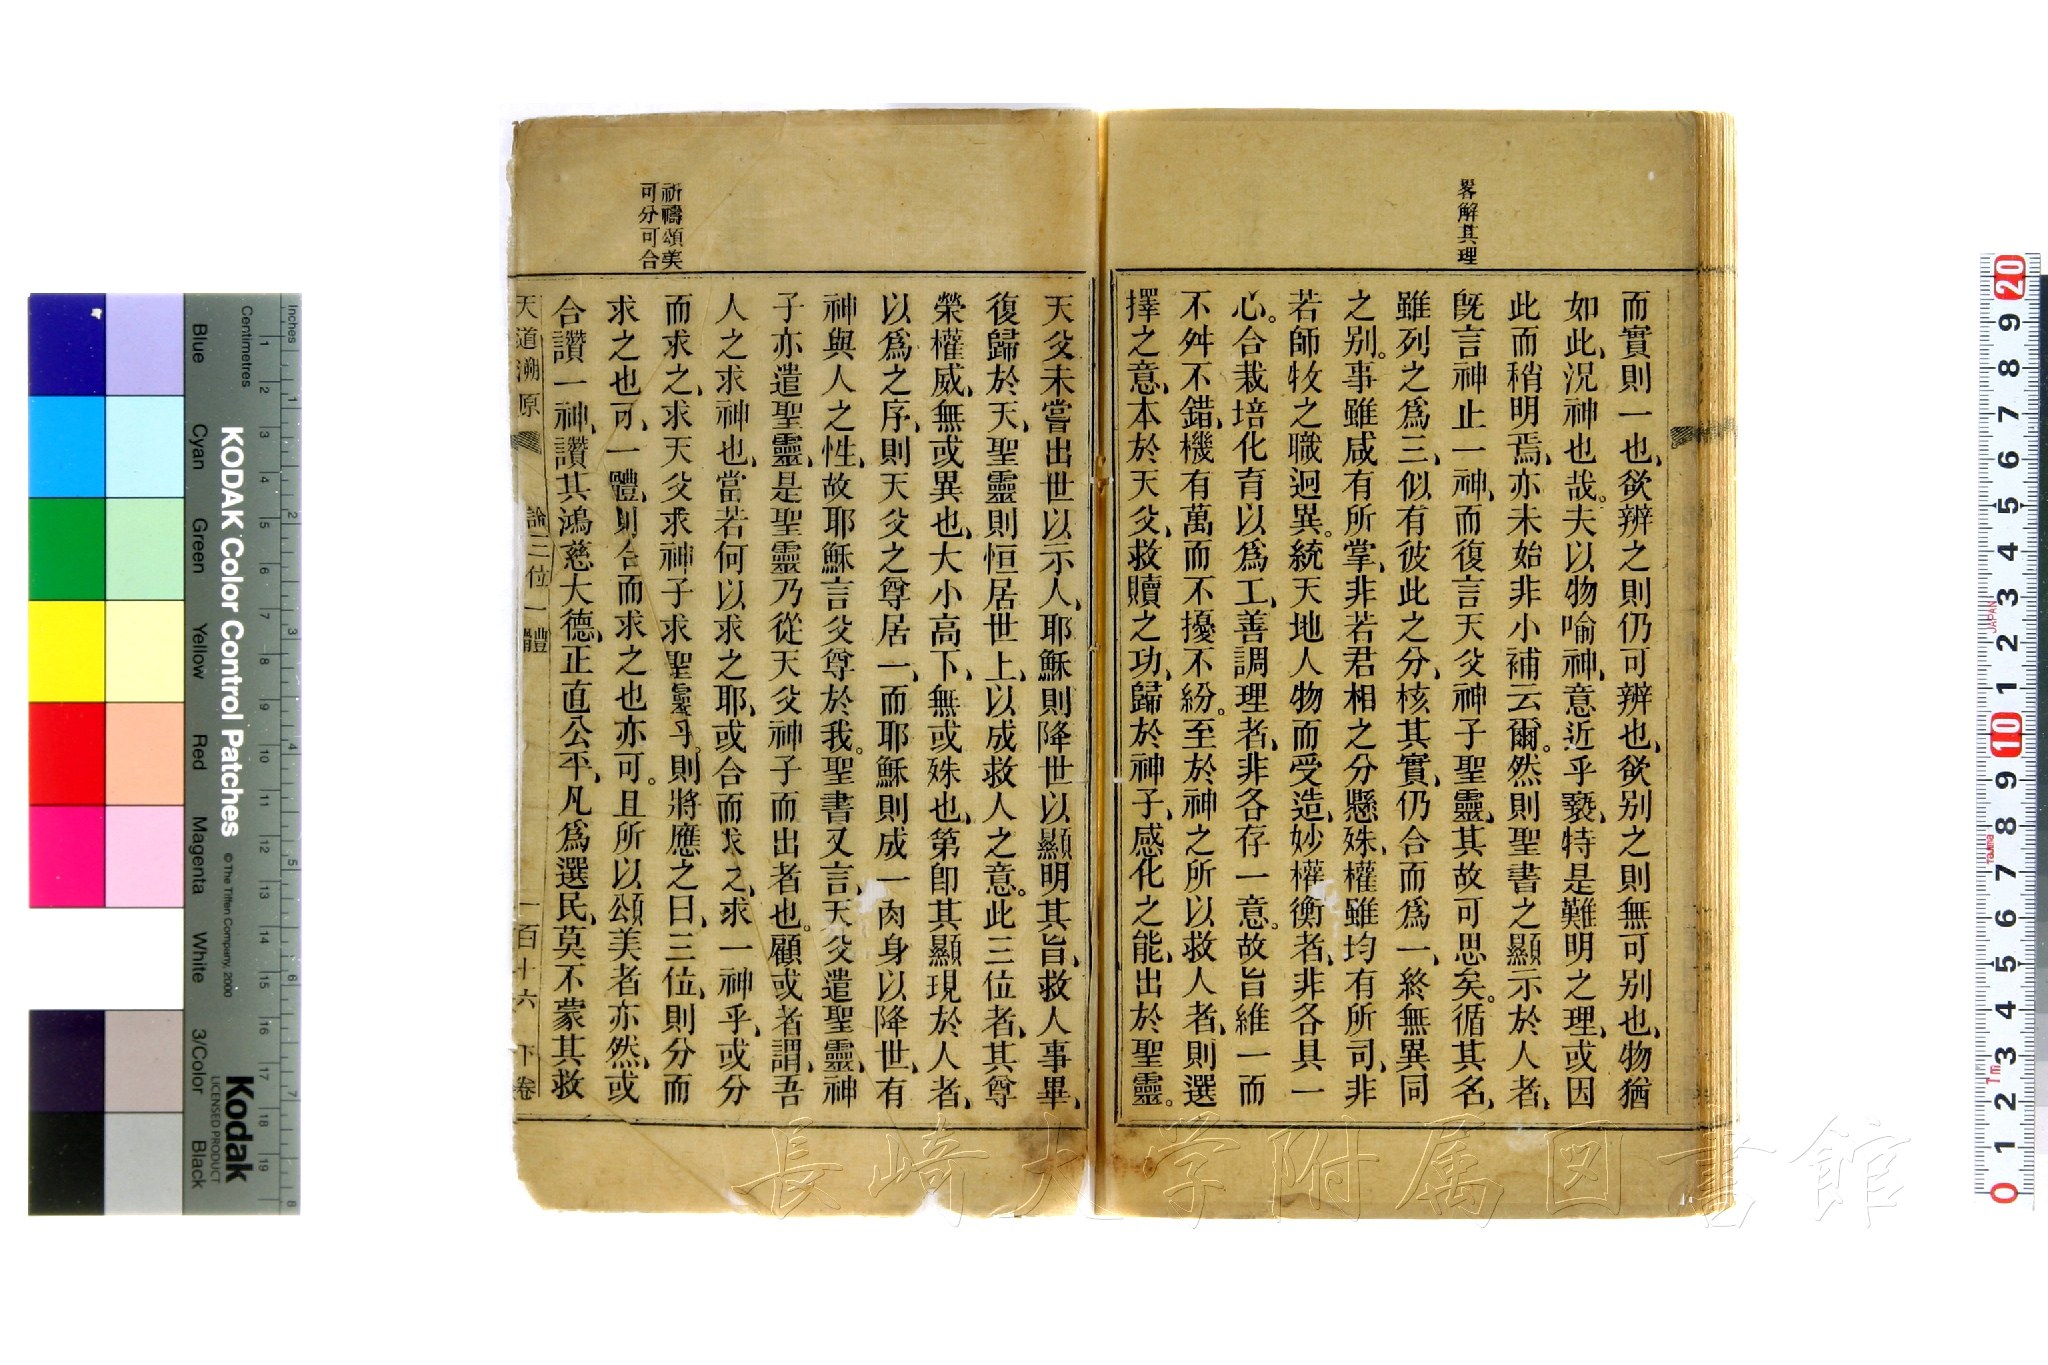 畧解其理
而實則一也、欲辨之則仍可辨也、欲别之則無可别也、物猶
如此、況神也哉。夫以物喻神、意近乎褻、特是難明之理、或因
此而稍明焉、亦未始非小補云爾。然則聖書之顯示於人者、
旣言神止一神、而復言天父神子聖靈、其故可思矣。循其名、
雖列之爲三、似有彼此之分、核其實、仍合而爲一、終無異同
之别。事雖咸有所掌、非若君相之分懸殊、權雖均有所司、非
若師牧之職迥異。統天地人物而受造、妙權衡者、非各具一
心。合栽培化育以爲工、善調理者、非各存一意。故旨維一而
不舛不錯、機有萬而不擾不紛。至於神之所以救人者、則選
擇之意、本於天父、救贖之功、歸於神子、感化之能、出於聖靈。
祈禱頌美
可分可合
天父未嘗出世以示人、耶穌則降世以顯明其旨、救人事畢、
復歸於天、聖靈則恒居世上、以成救人之意。此三位者、其尊
榮權威、無或異也、大小高下、無或殊也、第卽其顯現於人者、
以爲之序、則天父之尊居一、而耶穌則成一肉身以降世、有
神與人之性、故耶穌言父尊於我。聖書又言、天父遣聖靈、神
子亦遣聖靈、是聖靈乃從天父神子而出者也。顧或者謂、吾
人之求神也、當若何以求之耶、或合而求之、求一神乎、或分
而求之、求天父求神子求聖靈乎。則將應之曰、三位、則分而
求之也可、一體、則合而求之也亦可。且所以頌美者亦然、或
合讚一神、讚其鴻慈大德、正直公平、凡爲選民、莫不蒙其救
天道溯原 論三位一體 一百十六 下卷
長崎大学附属図書館
KODAK Color Control Patches
© The Tiffen Company, 2000
Kodak
LICENSED PRODUCT
Inches
Centimetres
Blue
Cyan
Green
Yellow
Red
Magenta
White
3/Color
Black
JAPAN